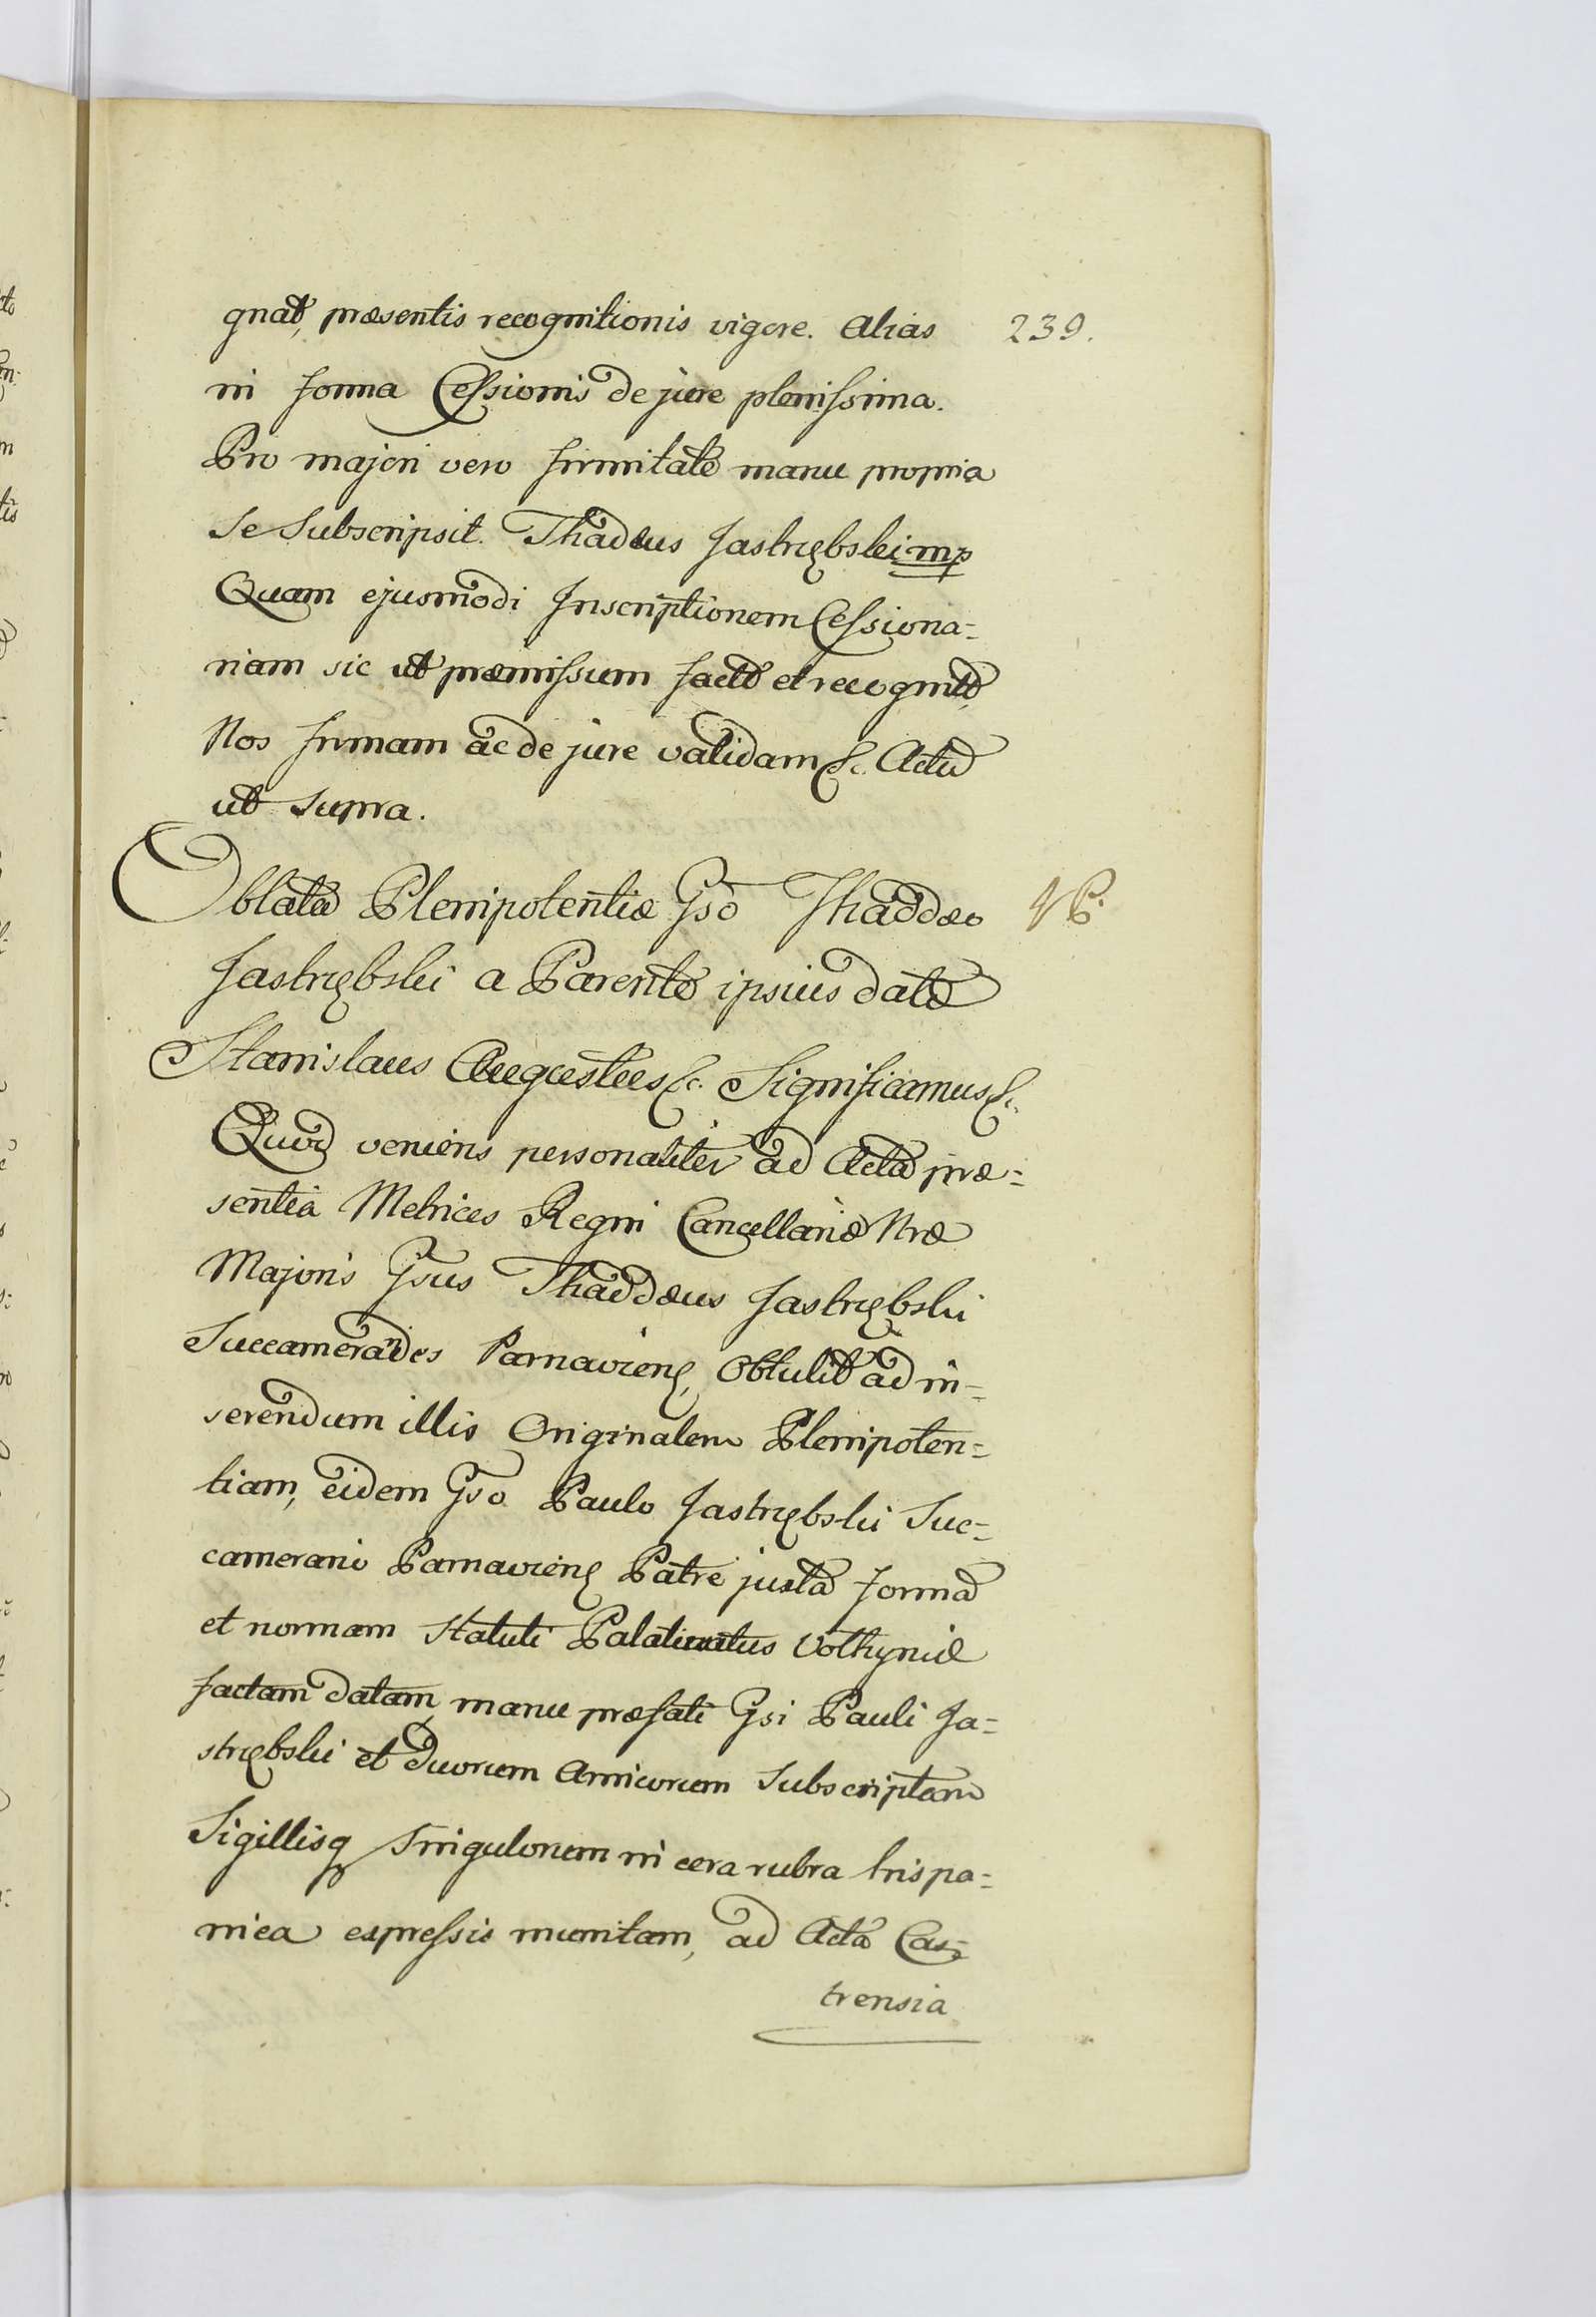 gnat, præsentis recognitionis vigore. Alias
239.
in forma Cessionis de jure plenissima.
Pro majori vero firmitate manu propria
se subscripsit. Thadæus Jastrzębski mp
Quam ejusmodi Inscriptionem Cessiona=
riam sic ut præmissum facta et recognita,
Nos firmam ac de jure validam &c. Actu
ut supra.
Oblata Plenipotentiæ Gso Thaddæo
Jastrzębski a Parente ipsius data
Stanislaus Augustus &c. Significamus &c.
Quod veniens personaliter ad Acta præ=
sentia Metrices Regni Cancellariæ Nræ
Majoris Gsus Thaddæus Jastrzębski
Succamerarides Parnaviens, obtulit ad in=
serendum illis Originalem Plenipoten=
tiam, eidem Gso Paulo Jastrzębski Suc=
camerario Parnaviens Patre juxta forma
et normam statuti Palatinatus Volhyniæ
factam datam, manu præfati Gsi Pauli Ja=
strzębski et duorum Amicorum subscriptam
Sigillisq singulorum in cera rubra hispa=
nica expressis munitam, ad Acta Cas=
trensia